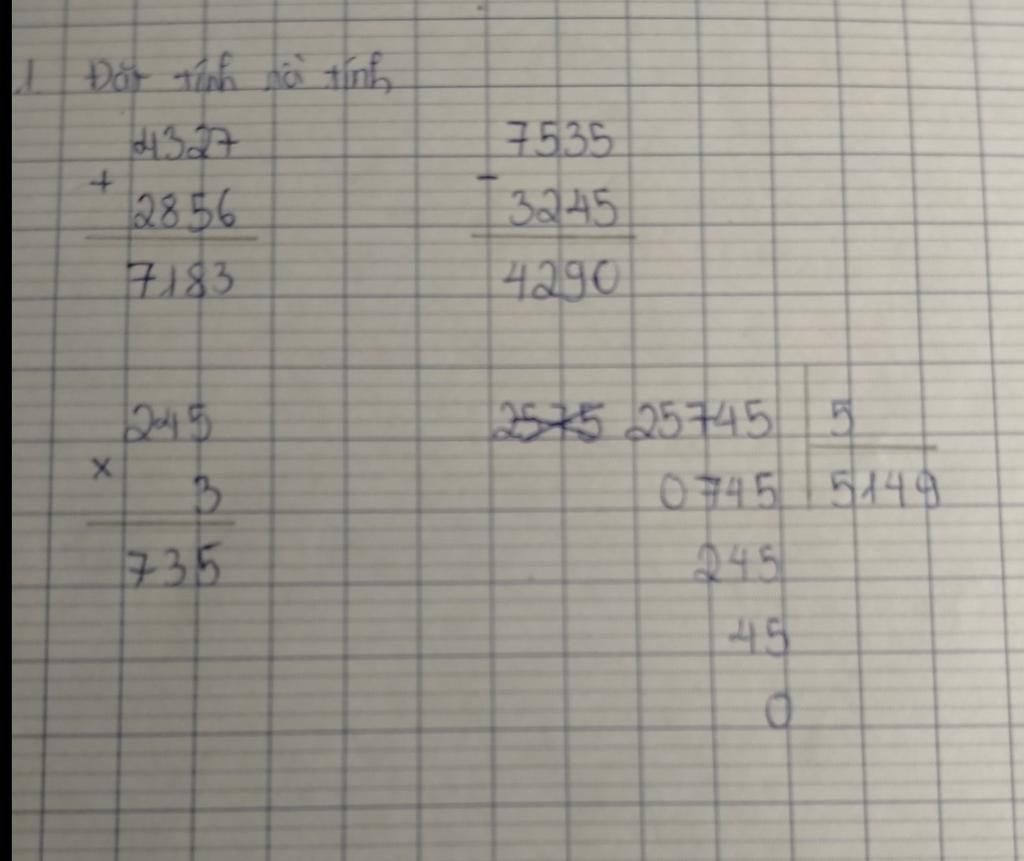 1 Đặt tính rồi tính
4327
+
2856
7183
7535
-
3245
4290
245
x
3
735
2575 25745 5
0745 5149
245
45
0